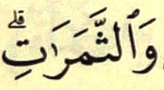 وَالثَّمَرَٰتِۗ